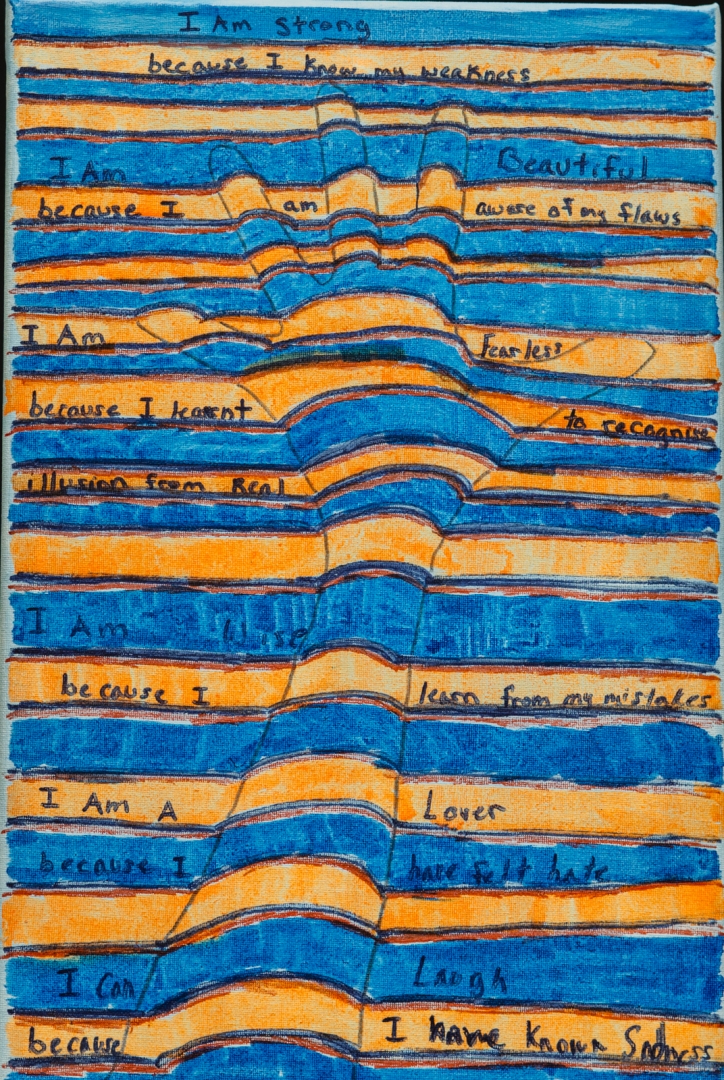 I Am strong
because I know my weakness
I Am Beautiful
because I am aware of my flaws
I Am fearless
because I learnt to recognise
illusion from Real
I Am Wise
because I learn from my mistakes
I Am A Lover
because I have felt hate
I Can Laugh
because I have known Sadness